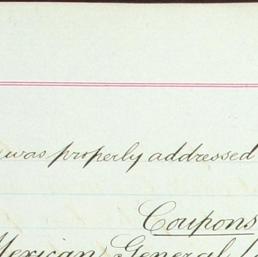 was properly addressed
Coupons
Mexican General